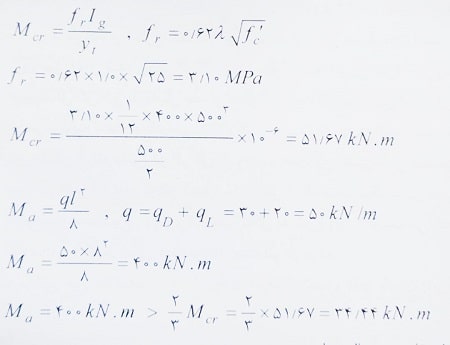 M_cr = f_r I_g / y_t , f_r = ۰/۶۲λ √f_c′
f_r = ۰/۶۲×۱/۰×√۲۵ = ۳/۱۰ MPa
M_cr = (۳/۱۰ × ۱/۱۲ × ۴۰۰ × ۵۰۰^۳) / (۵۰۰/۲) ×۱۰^-۶ = ۵۱/۶۷ kN.m
M_a = ql^۲ / ۸ , q = q_D + q_L = ۳۰+۲۰ = ۵۰ kN/m
M_a = ۵۰×۸^۲ / ۸ = ۴۰۰ kN.m
M_a = ۴۰۰ kN.m > ۲/۳ M_cr = ۲/۳ ×۵۱/۶۷ = ۳۴/۴۴ kN.m